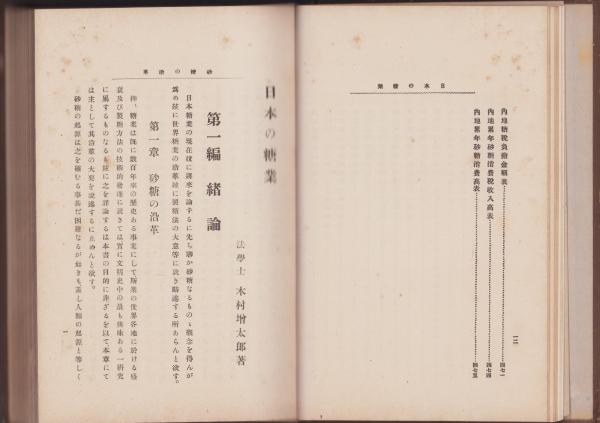 日本の糖業
內地糖稅負擔金額表…………四七一
內地累年砂糖消費稅收入高表…………四七四
內地累年砂糖消費高表…………四七五
一二
砂糖の沿革
日本の糖業
法學士 木村增太郎著
第一編 緒論
日本糖業の現在並に將來を論ずるに先ち聊か砂糖なるものゝ概念を得んが
爲め玆に世界糖業の沿革並に製糖法の大意等に就き略述する所あらんと欲す。
第一章 砂糖の沿革
抑、糖業は旣に數百年來の歷史ある事業にして斯業の世界各地に於ける盛
衰及び製糖方法の技術的發達に就きては實に文明史中の最も興味ある一硏究
に屬するものなるも玆に之を詳論するは本書の目的に非ざるを以て本章にて
は主として其沿革の大要を敍述するに止めんと欲す。
砂糖の起源は之を確むる事甚だ困難なるが如きも蓋し人類の起源と等しく
一